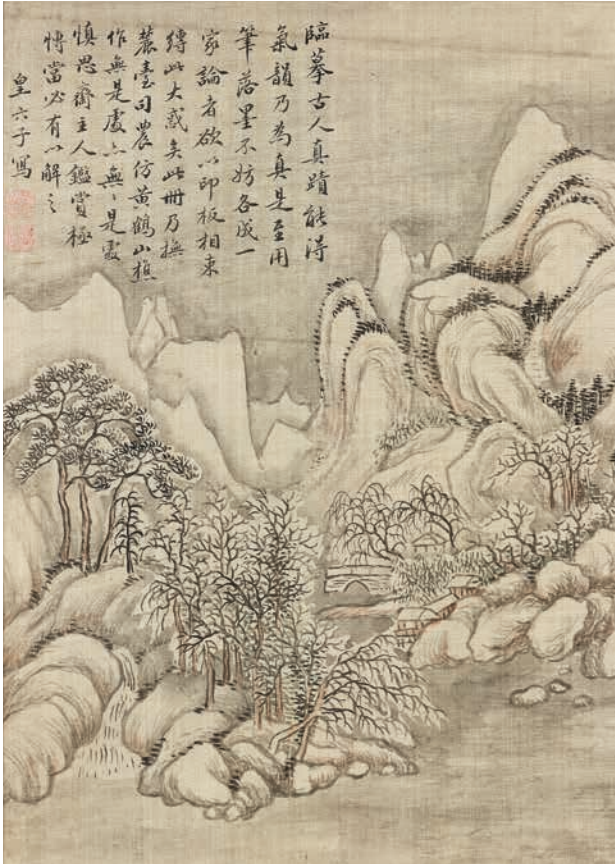 臨摹古人真蹟能得
氣韻乃為真是至用
筆落墨不妨各成一
家論者欲以印板相束
縛此大惑矣此冊乃撫
麓臺司農仿黃鶴山樵
作無是處亦無不是處
慎思齋主人鑑賞極
博當必有以解之
皇六子寫